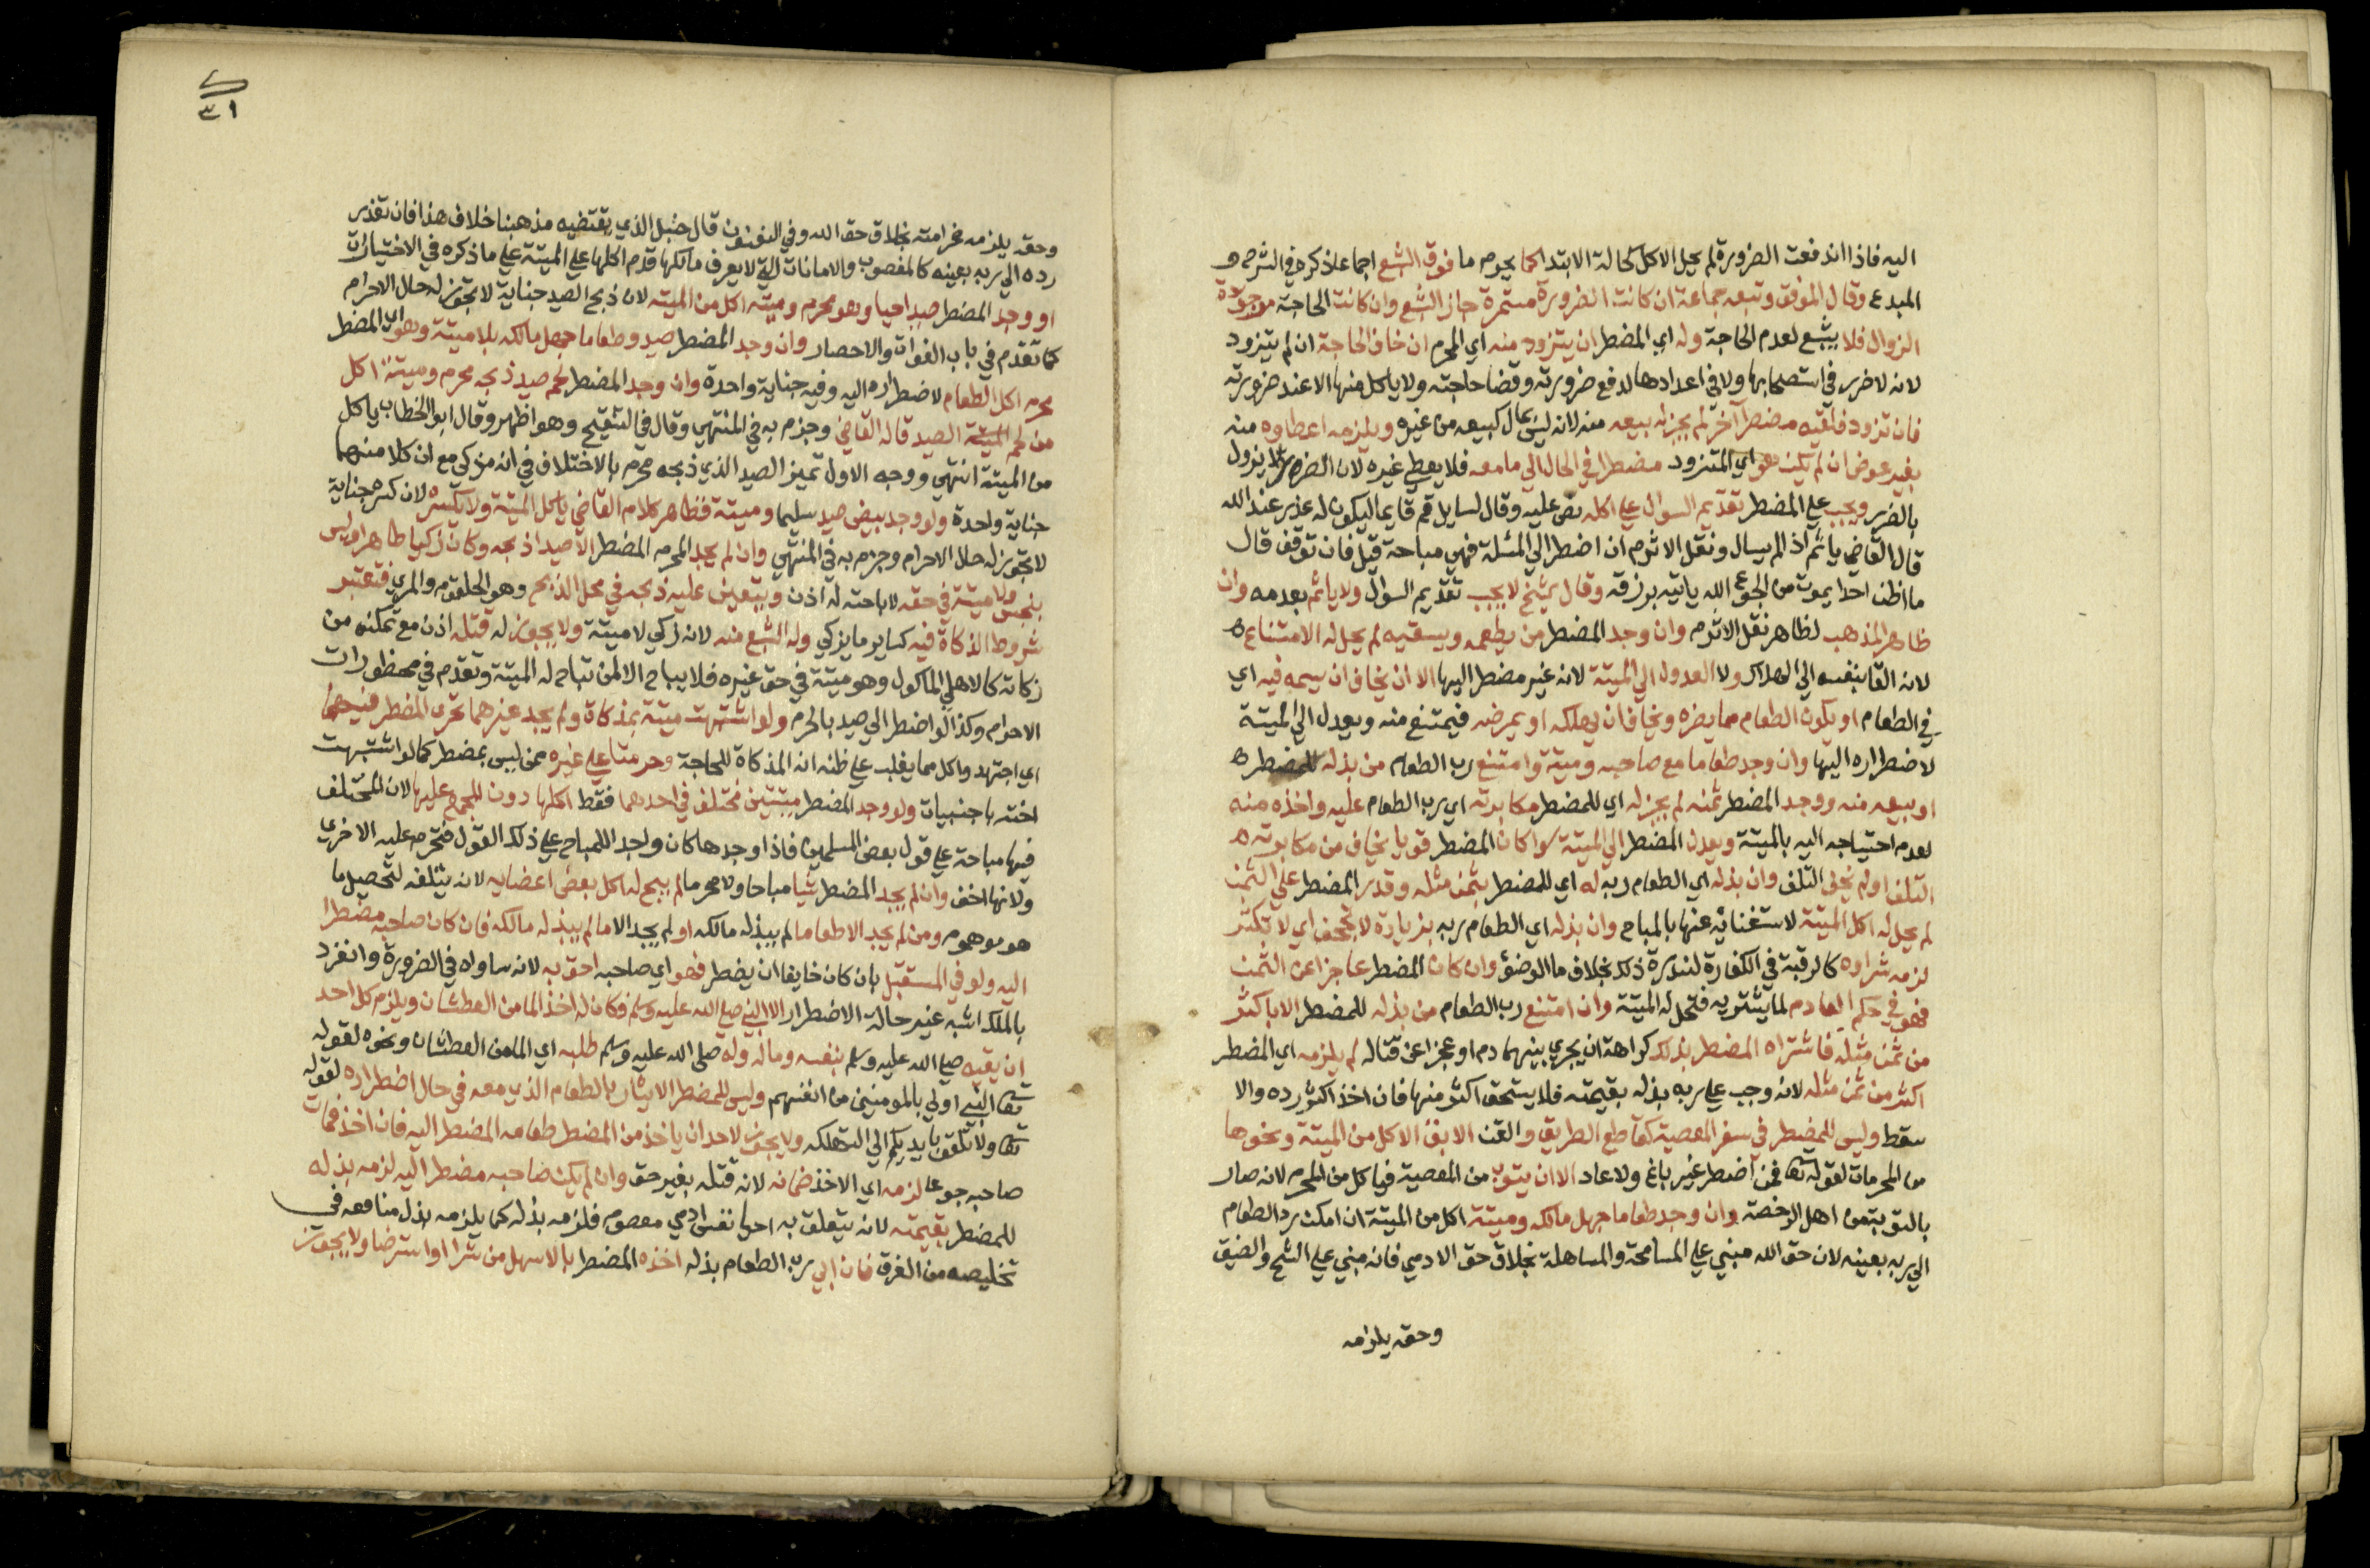 اليه فاذا اندفعت الضرورة لم يحل الاكل كحالة الابتدا كما يحرم ما فوق الشبع اجماعا ذكره في الشرح و
المبدع وقال الموفق وتبعه جماعة ان كانت الضرورة مستمرة جاز الشبع وان كانت الحاجة مرجوة
الزوال فلا يشبع لعدم الحاجة وله اي المضطر ان يتزود منه اي المحرم ان خاف الحاجة ان لم يتزود
لانه لا ضرر في استصحابها ولا في اعدادها لدفع ضرورته وقضا حاجته ولا ياكل منها الا عند ضرورته
فان تزود فلقيه مضطر آخر لم يجز له بيعه منه لانه ليس بمال كبيعه من غيره ويلزمه اعطاوه منه
بغير عوض ان لم يكن هو اي المتزود مضطرا في الحال الي ما معه فلا يعطي غيره لان الضرر لا يزول
بالضرر ويجب علي المضطر تقديم السوال علي اكله نص عليه وقال لسايل قم قايما ليكون له عذر عند الله
قال القاضي ياثم اذا لم يسال ونقل الاثرم ان اضطر الي المسلة فهي مباحة قيل فان توقف قال
ما اظن احدا يموت من الجوع الله ياتيه برزقه وقال شيخ لا يجب تقديم السوال ولا ياثم بعدمه وان
ظاهر المذهب لظاهر نقل الاثرم وان وجد المضطر من يطعمه ويسقيه لم يحل له الامتناع
لانه القا بنفسه الي الهلاك ولا العدول الي الميتة لانه غير مضطر اليها الا ان يخاف ان يسمه فيه اي
في الطعام او يكون الطعام مما يضره ويخاف ان يهلكه او يمرضه فيمتنع منه ويعدل الي الميتة
لاضطراره اليها وان وجد طعاما مع صاحبه وميتة وامتنع رب الطعام من بذله للمضطر
او بيعه منه ووجد المضطر ثمنه لم يجز له اي للمضطر مكابرته اي رب الطعام عليه واخذه منه
لعدم احتياجه اليه بالميتة ويعدل المضطر الي الميتة سوا كان المضطر قويا يخاف من مكابرته
التلف او لم يخف التلف وان بذله اي الطعام ربه له اي للمضطر بثمن مثله وقدر المضطر علي الثمن
لم يحل له اكل الميتة لاستغنائه عنها بالمباح وان بذله اي الطعام ربه بزيادة لا تجحف اي لا تكثر
لزمه شراوه كالرقبة في الكفارة لندرة ذلك بخلاف ما الوضؤ وان كان المضطر عاجزا عن الثمن
فهو في حكم العادم لما يشتريه فتحل له الميتة وان امتنع رب الطعام من بذله للمضطر الا باكثر
من ثمن مثله فاشتراه المضطر بذلك كراهة ان يجري بينهما دم او عجزا عن قتاله لم يلزمه اي المضطر
اكثر من ثمن مثله لانه وجب علي ربه بذله بقيمته فلا يستحق اكثر منها فان اخذ اكثر رده والا
سقط وليس للمضطر في سفر المعصية كقاطع الطريق والقن الابق الاكل من الميتة ونحوها
من المحرمات لقوله تعا فمن اضطر غير باغ ولا عاد الا ان يتوب من المعصية فياكل من المحرم لانه صار
بالتوبة من اهل الرخصة وان وجد طعاما جهل مالكه وميتة اكل من الميتة ان امكن رد الطعام
الي ربه بعينه لان حق الله مبني علي المسامحة والمساهلة بخلاف حق الادمي فانه مبني علي الشح والضيق
وحقه يلزمه
٣١
وحقه يلزمه غرامته بخلاف حق الله وفي الفنون قال حنبل الذي يقتضيه مذهبنا خلاف هذا فان تعذر
رده الي ربه بعينه كالمغصوب والامانات التي لا يعرف مالكها قدم اكلها علي الميتة علي ما ذكره في الاختيارات
او وجد المضطر صيدا حيا وهو محرم وميته اكل من الميته لان ذبح الصيد جناية لا تجوز له حال الاحرام
كما تقدم في باب الفوات والاحصار وان وجد المضطر صيد وطعاما جهل مالكه بلا ميتة وهو اي المضطر
محرم اكل الطعام لاضطراره اليه وفيه جناية واحدة وان وجد المضطر لحم صيد ذبحه محرم وميتة اكل
من لحم الصيد قاله القاضي وجزم به في المنتهي وقال في التنقيح وهو اظهر وقال ابو الخطاب ياكل
من الميتة انتهي ووجه الاول تميز الصيد الذي ذبحه محرم بالاختلاف في انه مزكي مع ان كلا منهما
جناية واحدة ولو وجد بيض صيد سليما وميتة فظاهر كلام القاضي ياكل الميتة ولا يكسره لان كسره جناية
لا تجوز له حال الاحرام وجزم به في المنتهي وان لم يجد المحرم المضطر الا صيدا ذبحه وكان زكيا طاهرا وليس
بنجس ولا ميتة في حقه لاباحته له اذن ويتعين عليه ذبحه في محل الذبح وهو الحلقوم والمري فتعتبر
شروط الذكاة فيه كساير ما يزكي وله الشبع منه لانه زكي لا ميتة ولا يجوز له قتله اذن مع تمكنه من
زكاته كالاهلي الماكول وهو ميتة في حق غيره فلا يباح الا لمن تباح له الميتة وتقدم في محظورات
الاحرام وكذا لو اضطر الي صيد بالحرم ولو اشتبهت ميتة بمذكاة ولم يجد غيرهما تحرى المضطر فيهما
اي اجتهد واكل مما يغلب علي ظنه انه المذكاة للحاجة وحرمتا علي غيره ممن ليس بمضطر كما لو اشتبهت
اخته باجنبيات ولو وجد المضطر ميتتين مختلف في احدهما فقط اكلها دون المجمع عليها لان المختلف
فيها مباحة علي قول بعض المسلمين فاذا وجدها كان واجدا للمباح علي ذلك القول فتحرم عليه الاخري
ولانها اخف وان لم يجد المضطر شيا مباحا ولا محرما لم يبح له اكل بعض اعضايه لانه يتلفه لتحصيل ما
هو موهوم ومن لم يجد الا طعاما لم يبذله مالكه او لم يجد الا ما لم يبذله مالكه فان كان صاحبه مضطرا
اليه ولو في المستقبل بان كان خايفا ان يضطر فهو اي صاحبه احق به لانه ساواه في الضرورة وانفرد
بالملك اشبه غير حالة الاضطرار الا النبي صلي الله عليه وسلم فكان له اخذ الما من العطشان ويلزم كل احد
ان يقيه صلي الله عليه وسلم بنفسه وماله وله صلى الله عليه وسلم طلبه اي الما من العطشان ونحوه لقوله
تعا النبي اولي بالمومنين من انفسهم وليس للمضطر الايثار بالطعام الذي معه في حال اضطراره لقوله
تعا ولا تلقوا بايديكم الي التهلكه ولا يجوز لاحد ان ياخذ من المضطر طعامه المضطر اليه فان اخذ فمات
صاحبه جوعا لزمه اي الاخذ ضمانه لانه قتله بغير حق وان لم يكن صاحبه مضطرا اليه لزمه بذله
للمضطر بقيمته لانه يتعلق به احيا نفس ادمي معصوم فلزمه بذله كما يلزمه بذل منافعه في
تخليصه من الغرق فان ابي رب الطعام بذله اخذه المضطر بالاسهل من شرا او استرضا ولا يجوز